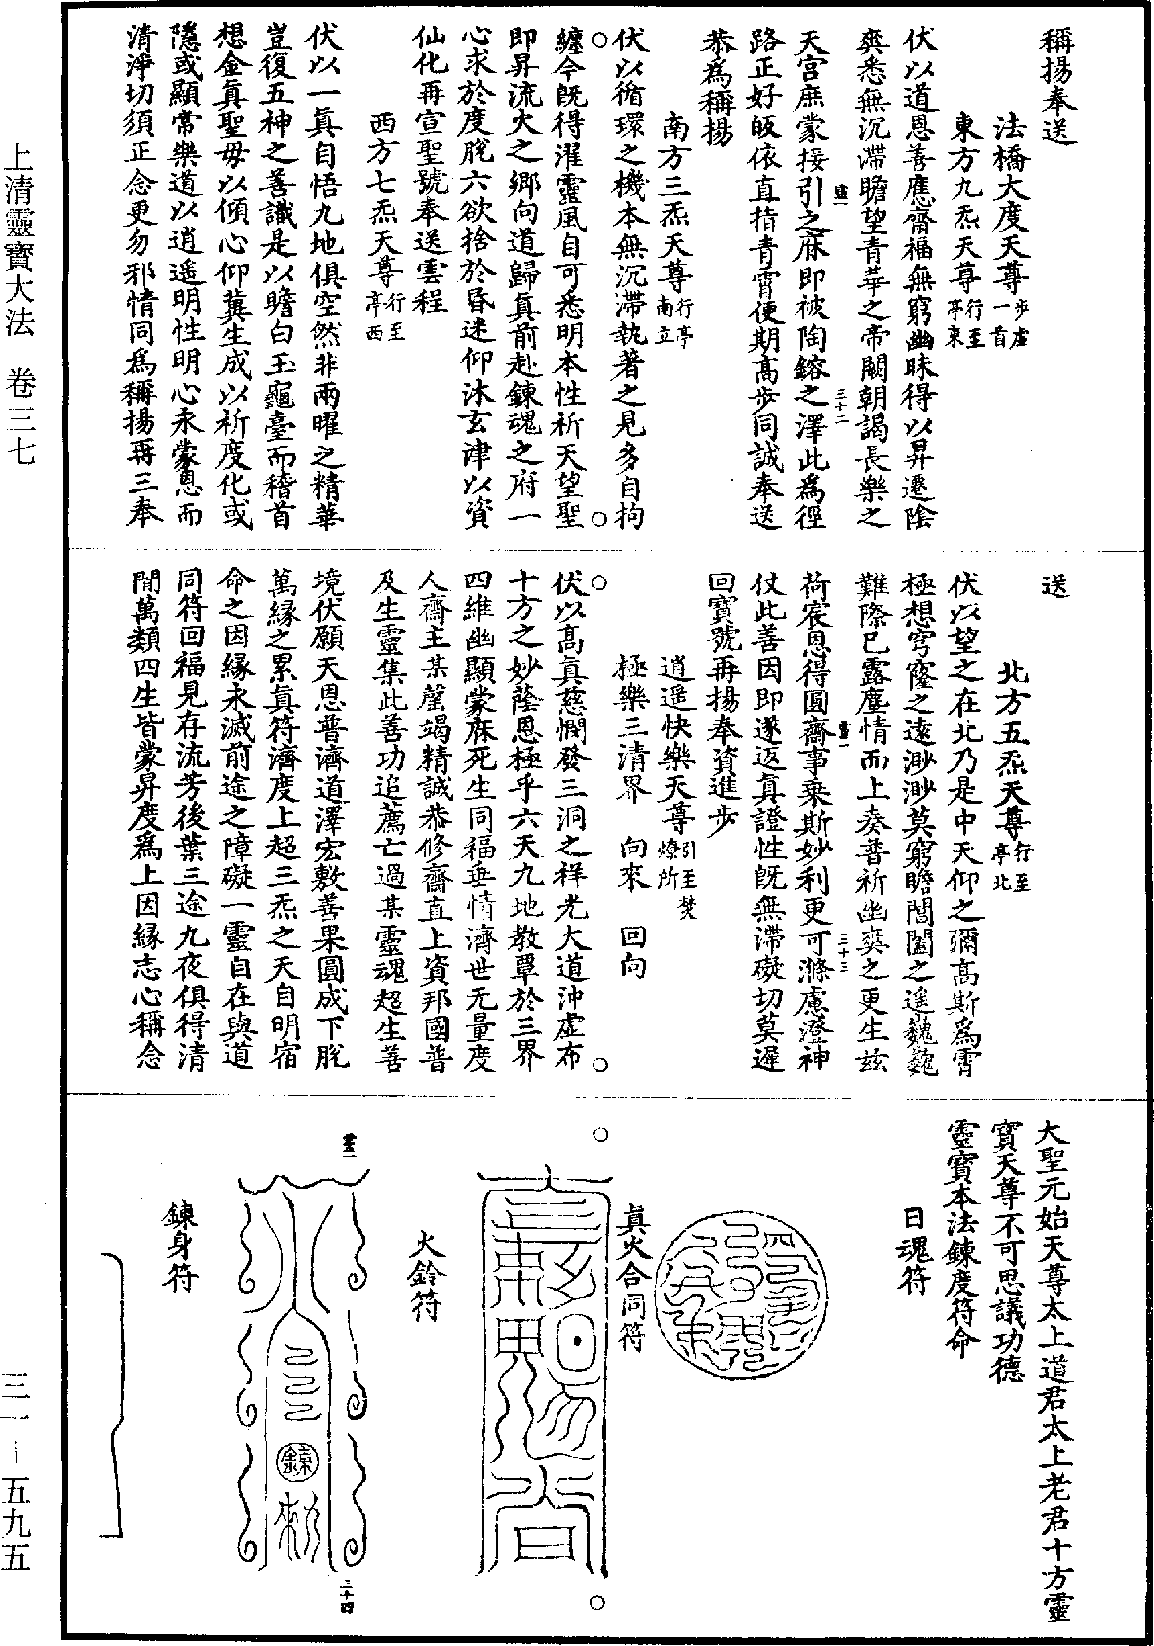 稱揚奉送
法橋大度天尊步虛一首
東方九炁天尊行至亭東
伏以道恩善應齋福無窮幽昧得以昇遷陰
爽悉無沉滯瞻望青華之帝闕朝謁長樂之
天宮庶蒙接引之庥即被陶鎔之澤此爲徑
路正好皈依直指青霄便期高步同誠奉送
恭爲稱揚
南方三炁天尊行亭南立
伏以循環之機本無沉滯執著之見多自拘
纏今既得濯靈風自可悉明本性祈天望聖
即昇流火之鄉向道歸眞前赴鍊魂之府一
心求於度脫六欲捨於昏迷仰沐玄津以資
仙化再宣聖號奉送雲程
西方七炁天尊行至亭西
伏以一眞自悟九地俱空然非兩曜之精華
豈復五神之善識是以瞻白玉龜臺而稽首
想金眞聖母以傾心仰冀生成以祈度化或
隱或顯常樂道以逍遥明性明心永蒙恩而
清淨切須正念更勿邪情同爲稱揚再三奉
送
北方五炁天尊行至亭北
伏以望之在北乃是中天仰之彌高斯爲霄
極想穹窿之遠渺渺莫窮瞻閶闔之遥巍巍
難際已露塵情而上奏普祈幽爽之更生兹
荷宸恩得圓齋事乘斯妙利更可滌慮澄神
仗此善因即遂返眞證性既無滯礙切莫遲
回寶號再揚奉資進步
逍遥快樂天尊引至焚燎所
極樂三清界 向來 回向
伏以高眞慈憫發三洞之祥光大道沖虛布
十方之妙蔭恩極乎六天九地教覃於三界
四維幽顯蒙庥死生同福垂情濟世无量度
人齋主某罄竭精誠恭修齋直上資邦國普
及生靈集此善功追薦亡過某靈魂超生善
境伏願天恩普濟道澤宏敷善果圓成下脫
萬緣之累眞符濟度上超三炁之天自明宿
命之因緣永滅前途之障礙一靈自在與道
同符回福見存流芳後葉三途九夜俱得清
閒萬類四生皆蒙昇度爲上因緣志心稱念
大聖元始天尊太上道君太上老君十方靈
寶天尊不可思議功德
靈寶本法鍊度符命
日魂符
眞火合同符
火鈴符
鍊身符
三十二
三十三
三十四
上清靈寶大法 卷三七
三一－五九五